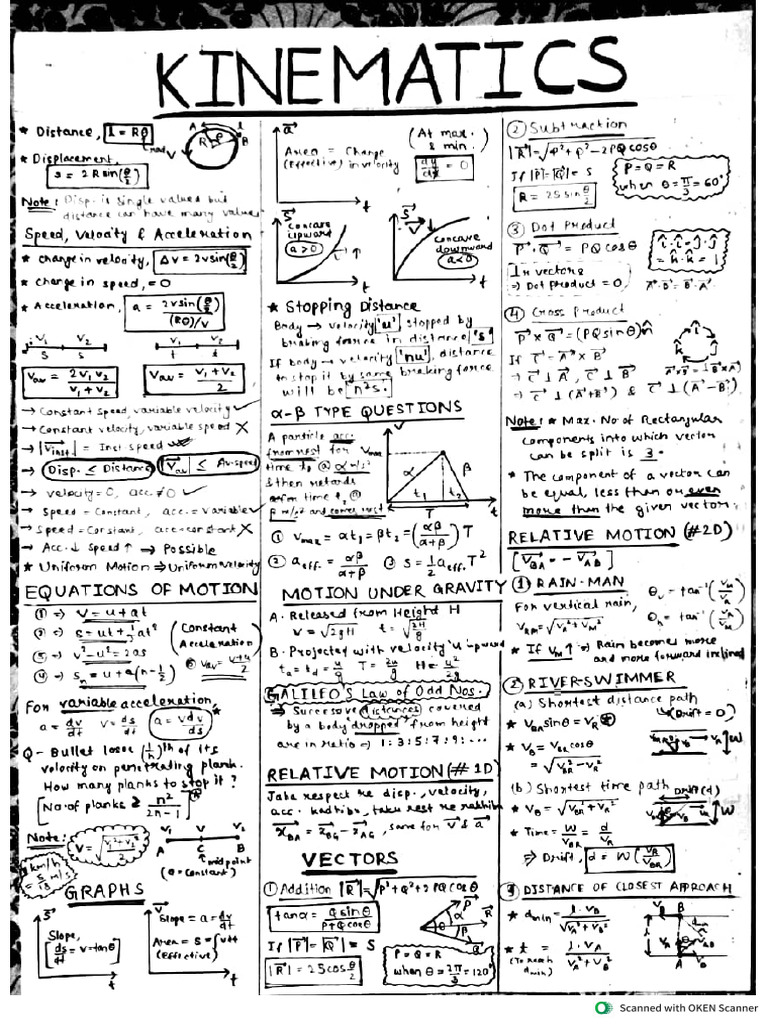 KINEMATICS
* Distance, l = Rθ
* Displacement,
s = 2R sin(θ/2)
Note: Disp. is single values but
distance can have many values
Speed, Velocity & Acceleration
* change in velocity, Δv = 2v sin(θ/2)
* change in speed, = 0
* Acceleration, a = 2v sin(θ/2) / (Rθ)/v
v₁ v₂
s s
v₁ v₂
t t
Vav = 2v₁v₂ / v₁ + v₂
Vav = v₁ + v₂ / 2
→ Constant speed, variable velocity ✓
→ Constant velocity, variable speed X
→ |V⃗inst| = Inst speed
→ Disp. ≤ Distance |V⃗av| ≤ Av. speed
→ velocity = 0, acc. ≠ 0 ✓
→ Speed = Constant, acc. = variable ✓
→ Speed = Constant, acc = constant X
→ Acc. ↓ Speed ↑ ⇒ Possible
* Uniform Motion ⇒ Uniform velocity
EQUATIONS OF MOTION
① ⇒ v = u + at
② ⇒ s = ut + ½at²
③ ⇒ v² - u² = 2as
④ ⇒ sn = u + a(n - 1/2)
(Constant Acceleration)
⑤ vav = v+u / 2
For variable acceleration,
a = dv/dt v = ds/dt a = v dv/ds *
Q- Bullet losse (1/n)th of its
velocity on penetrating plank.
How many planks to stop it?
[No. of planks ≥ n² / 2n - 1]
Note:
V = √(v₁² + v₂² / 2)
v₁ v v₂
A C B
↑ midpoint
(a = constant)
1 km/h
= 5/18 m/s
GRAPHS
s⃗
Slope,
[ds/dt = v = tanθ]
t
v⃗
Slope = a = dv/dt
Area = S = ∫vdt
(Effective)
t
a⃗
Area = Change
(Effective) in velocity
t
(At max. & min.
dy/dx = 0)
s⃗
concave
upward
a > 0
t
s⃗
Concave
downward
a < 0
t
* Stopping Distance
Body → velocity 'u', stopped by
braking force in distance 's'
If body → velocity 'nu', distance
to stop it by same braking force
will be n²s.
α-β TYPE QUESTIONS
A particle acc.
from rest for
time t₁ @ α m/s²
& then retards
t₂ @
β m/s² and comes rest
v
Vmax
α β
t₁ t₂
T
① vmax = αt₁ = βt₂ = (αβ / α+β) T
② aeff. = αβ / α+β
③ s = ½ aeff. T²
MOTION UNDER GRAVITY
A. Released from Height H
v = √2gH t = √(2H/g)
B. Projected with velocity 'u' upward
ta = td = u/g T = 2u/g H = u²/2g
GALILEO'S Law of Odd Nos.
⇒ Successive distances covered
by a body dropped from height
are in ratio ⇒ 1:3:5:7:9:...
RELATIVE MOTION (# 1D)
Jaha respect ke disp., velocity,
x⃗BA = x⃗BG - x⃗AG, same for v⃗ & a⃗
VECTORS
① Addition |R⃗| = √P² + Q² + 2PQ cosθ
tanα = Q sinθ / P + Q cosθ
If |P⃗| = |Q⃗| = S
|R⃗| = 2S cos θ/2
P⃗
R⃗
Q⃗
α
θ
β
P = Q = R
when θ = 2π/3 = 120°
② Subtraction
|R⃗| = √P² + P² - 2PQ cosθ
If |P⃗| = |Q⃗| = S
R = 2S sin θ/2
P = Q = R
when θ = π/3 = 60°
③ Dot Product
P⃗ · Q⃗ = PQ cosθ
⊥r vectors
⇒ Dot product = 0,
î·î = ĵ·ĵ
= k̂·k̂ = 1
A⃗·B⃗ = B⃗·A⃗
④ Cross Product
P⃗ x Q⃗ = (PQ sinθ) n̂
If C⃗ = A⃗ x B⃗
⇒ C⃗ ⊥ A⃗, C⃗ ⊥ B⃗
⇒ C⃗ ⊥ (A⃗+B⃗) & C⃗ ⊥ (A⃗-B⃗)
î
k̂ ĵ
Note: * Max. No of Rectangular
components into which vector
can be split is 3.
* The component of a vector can
be equal, less than or even
more than the given vector.
RELATIVE MOTION (#2D)
[V⃗BA = - V⃗AB]
① RAIN-MAN
For vertical rain,
VRM = √VR² + VM²
θv = tan⁻¹(VM/VR)
θh = tan⁻¹(VR/VM)
* If VM ↑ ⇒ Rain becomes more
and more forward inclined
② RIVER-SWIMMER
(a) Shortest distance path
* VBR sinθ = VR
(Drift = 0)
* VB = VBR cosθ
= √VBR² - VR²
W
(b) Shortest time path
Drift (d)
* VB = √VBR² + VR²
W
* Time = W/VBR = d/VR
⇒ Drift, d = W(VR/VBR)
③ DISTANCE OF CLOSEST APPROACH
* dmin = l·VB / √VA² + VB²
* t = l·VA / VA² + VB²
(To reach
dmin)
VB B
l
VA A
Scanned with OKEN Scanner